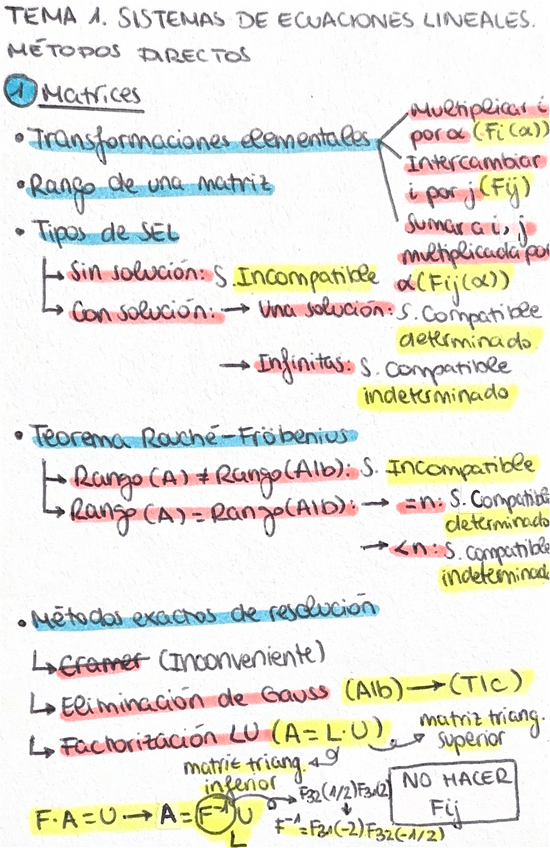 TEMA 1. SISTEMAS DE ECUACIONES LINEALES.
MÉTODOS DIRECTOS
1 Matrices
• Transformaciones elementales
Multiplicar i
por α (Fi(α))
Intercambiar
i por j (Fij)
Sumar a i, j
multiplicada por
α (Fij(α))
• Rango de una matriz
• Tipos de SEL
↳ Sin solución: S. Incompatible
↳ Con solución: → Una solución: S. Compatible
determinado
→ Infinitas: S. Compatible
indeterminado
• Teorema Rouché-Fröbenius
↳ Rango(A) ≠ Rango(A|b): S. Incompatible
↳ Rango(A) = Rango(A|b): → =n: S. Compatible
determinado
→ <n: S. Compatible
indeterminad
• Métodos exactos de resolución
↳ Cramer (Inconveniente)
↳ Eliminación de Gauss (A|b) → (T|c)
↳ Factorización LU (A = L·U)
matriz triang.
superior
matriz triang.
inferior
F·A = U → A = F⁻¹ U
L
F32(1/2)F31(2)
↓
F⁻¹ = F31(-2) F32(-1/2)
NO HACER
Fij